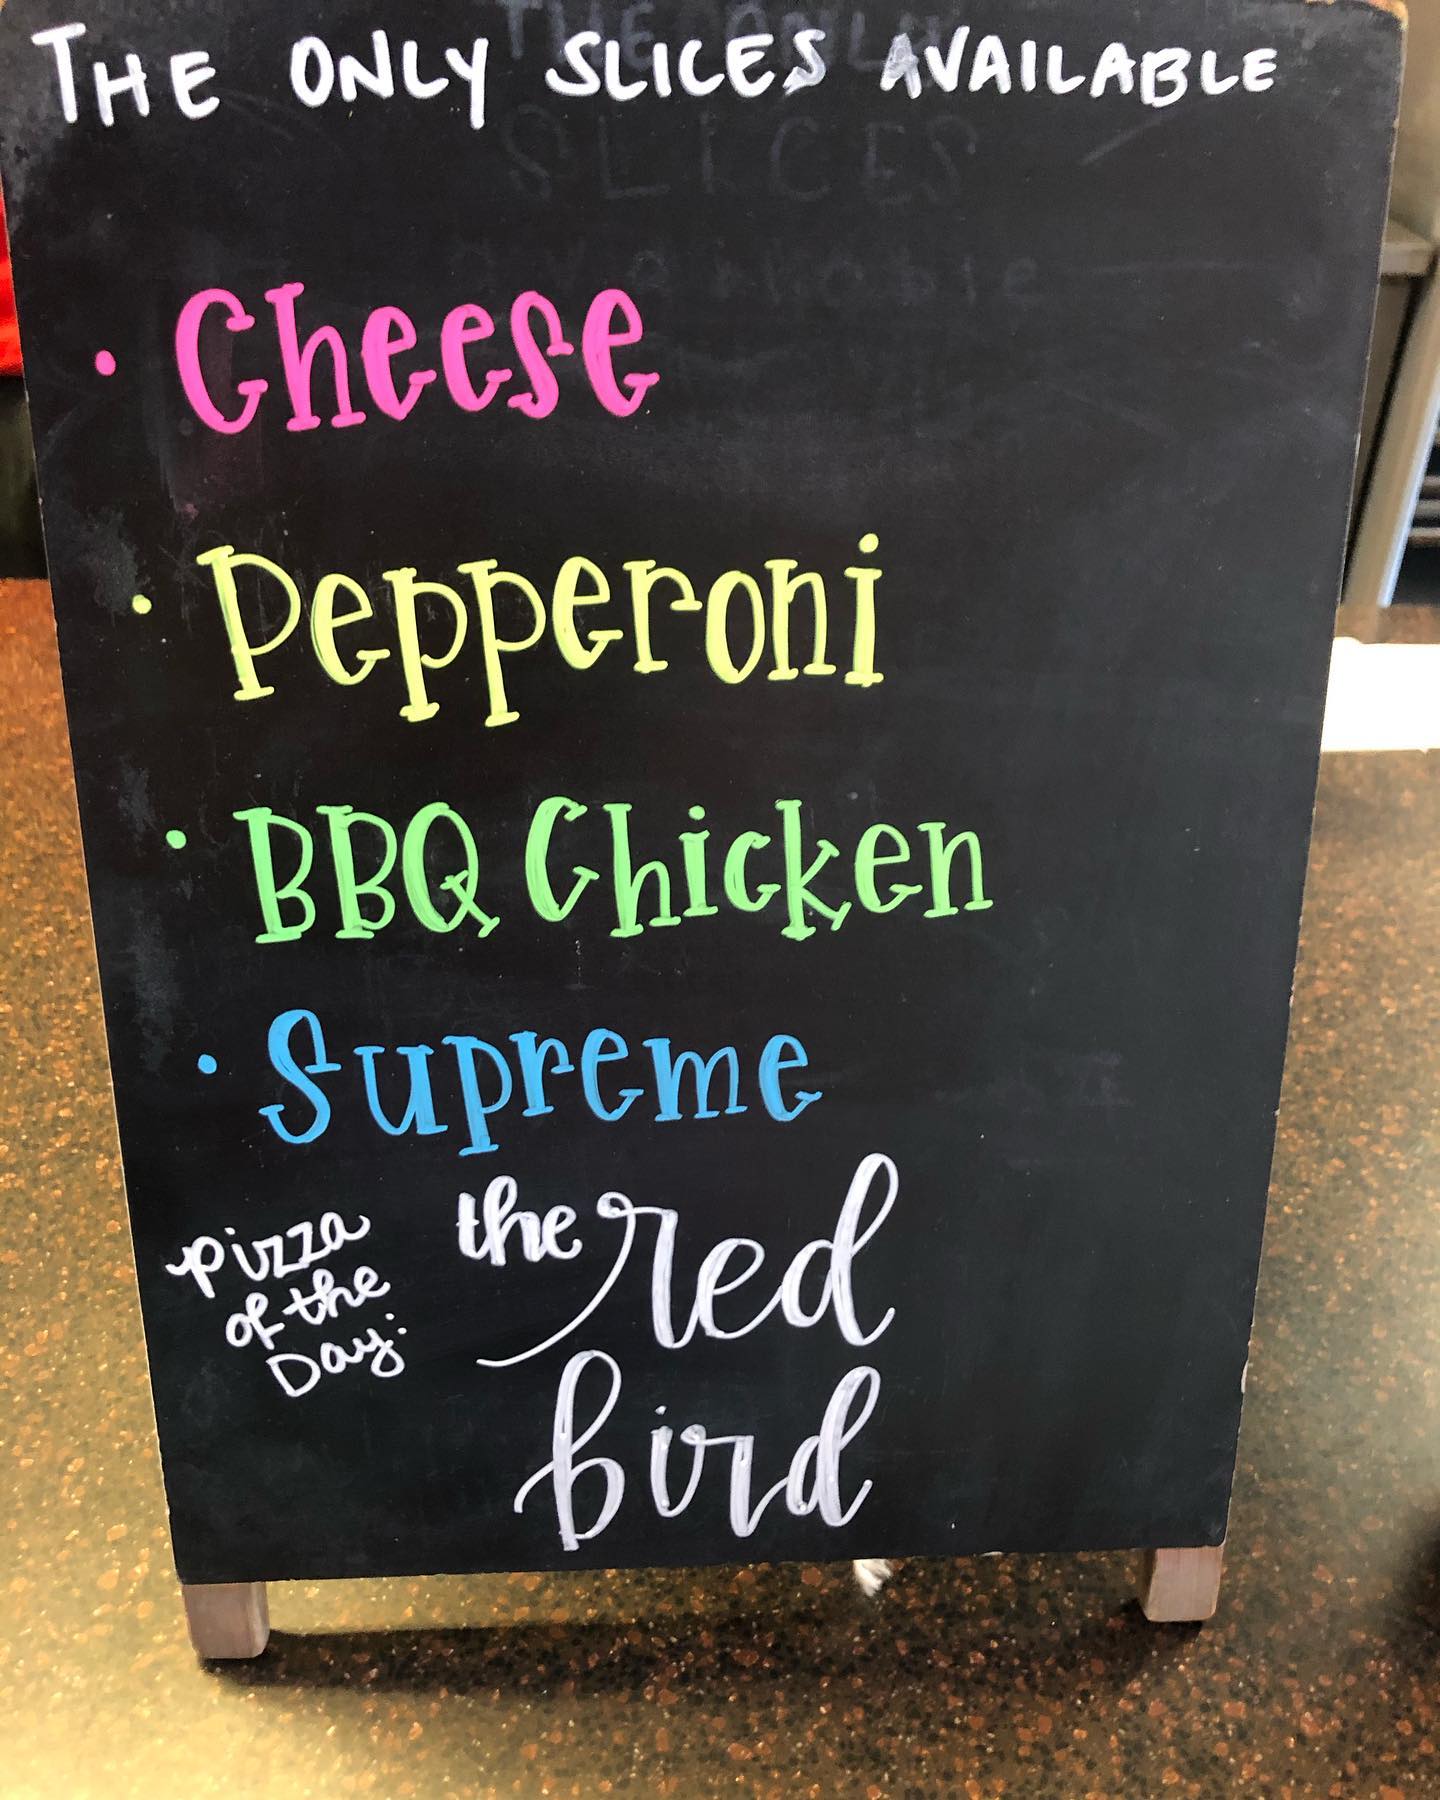 THE ONLY SLICES AVAILABLE
THE ONLY
SLICES
available
• Cheese
• Pepperoni
• BBQ Chicken
• Supreme
Pizza
of the
Day:
the red
bird